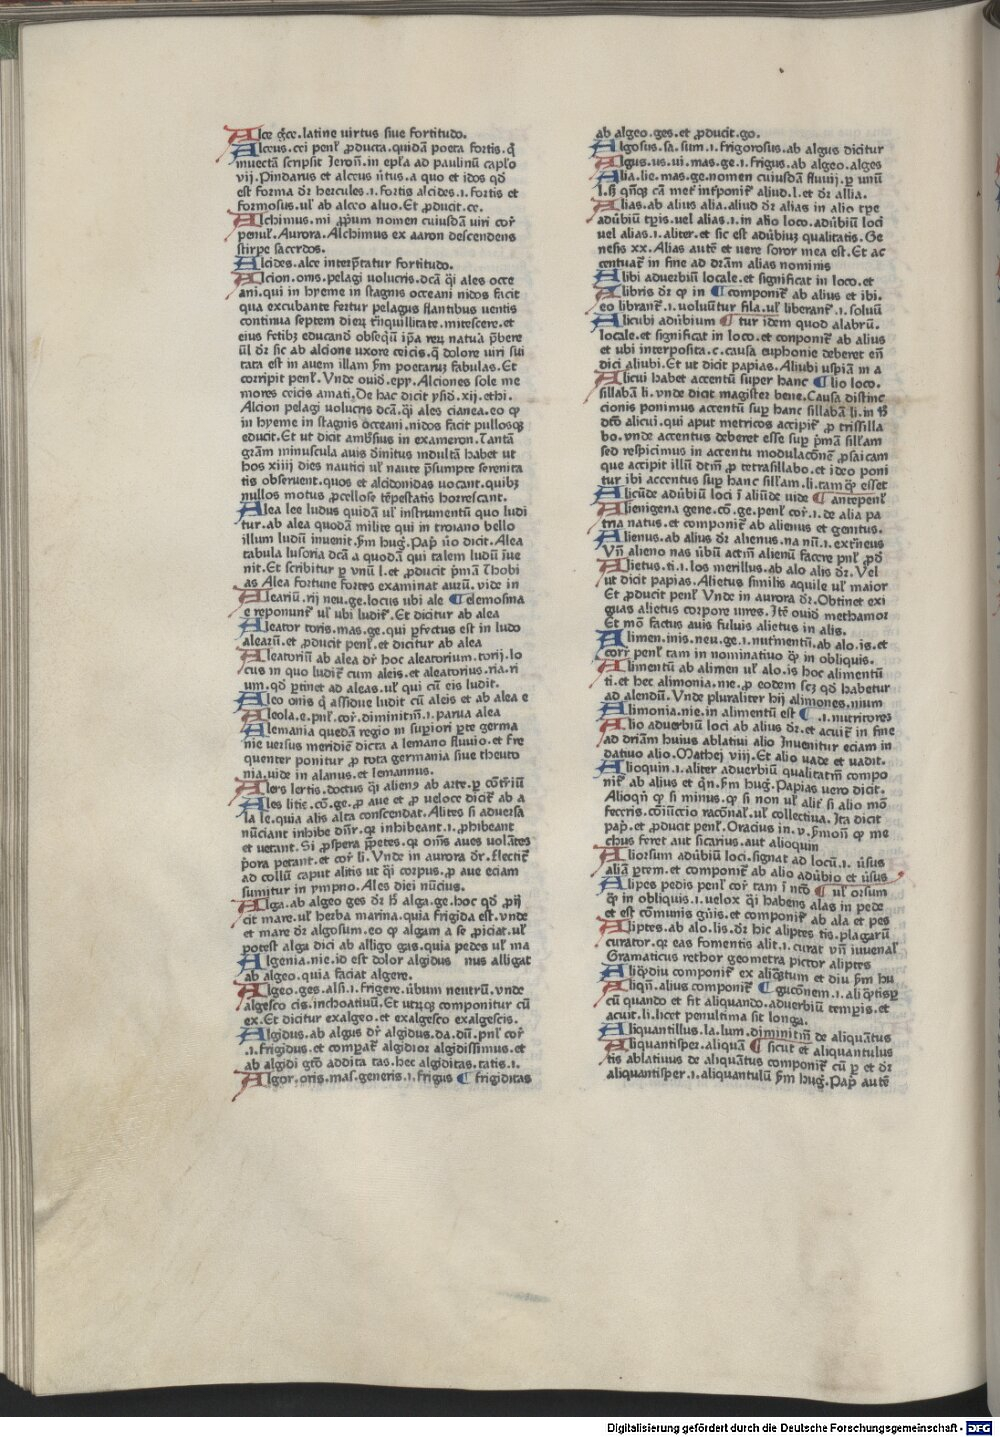 Alce gr̄ce.latine uirtus siue fortitudo.
Alceus.cei penl̄ ꝓducta.quidā poeta fortis.q̄
inuectā scripsit Jeron̄.in ep̄la ad paulinū cap̄lo
vij.Pindarus et alceus ūtus.a quo et idos qd̄
est forma dr̄ hercules.ı.fortis alcides.ı.fortis et
formosus.ul̄ ab alceo aluo.Et ꝓducit.ce.
Alchimus.mi ꝓp̄um nomen cuiusdā uiri cor̄
penul̄.Aurora.Alchimus ex aaron descendens
stirpe sacerdos.
Alcides.alce interp̄tatur fortitudo.
Alcion.onis.pelagi uolucris.dcā q̄i ales occe
ani.qui in hyeme in stagnis occeani nidos facit
qua excubante fertur pelagus flantibus uentis
continua septem dierꝝ tn̄quillitate.mitescere.et
eius fetibꝫ educand̄ obseqūū ip̄a rerꝝ natua p̄bere
ūl dr̄ sic ab alcione uxore ceicis.q̄ dolore uiri sui
tata est in auem illam s̄m poetaruꝫ fabulas.Et
corripit penl̄.Vnde ouid̄.epp̄.Alciones sole me
mores ceicis amati.De hac dicit ysid̄.xij.ethi.
Alcion pelagi uolucris dcā.q̄i ales cianea.eo ꝙ
in hyeme in stagnis occeani.nidos facit pullosqꝫ
educit.Et ut dicit amb̄sius in exameron.Tantā
grām minuscula auis diuinitus indultā habet ut
hos xiiij dies nautici ul̄ naute p̄sumpte serenita
tis obseruent.quos et alcidonidas uocant.quibꝫ
nullos motus ꝓcellose tēpestatis horrescant.
Alea lee ludus quidam ul̄ instrumentū quo ludi
tur.ab alea quodā milite qui in troiano bello
illum ludū inuenit.s̄m huḡ.Pap̄ ūo dicit.Alea
tabula lusoria dcā a quodā qui talem ludū īue
nit.Et scribitur ꝑ vnū l.et ꝓducit p̄mā Thobi
as Alea fortune fortes examinat aurū.vide in
Alearıū.rij neu.ge.locus ubi ale ¶ elemosina
e reponunt̄ ul̄ ubi ludit̄.Et dicitur ab alea
Aleator toris.mas.ge.qui ꝑfectus est in ludo
alearū.et ꝓducit penl̄.et dicitur ab alea
Aleatoriū ab alea dr̄ hoc aleatorium.torij.lo
cus in quo ludit̄ cum aleis.et aleatorius.ria.ri
um.qd̄ ꝑtinet ad aleas.ul̄ qui cū eis ludit.
Aleo onis q̄ assidue ludit cū aleis et ab alea e
Aleola.e.pnl̄.cor̄.diminitm̄.ı.parua alea
Alemania quedam regio in suꝑiori ꝑte germa
nie uersus meridiē dicta a lemano fluuio.et fre
quenter ponitur ꝓ tota germania siue theuto
nia.uide in alanus.et lemannus.
Alers lertis.doctus q̄i alienꝰ ab arte.ꝑ cōtr̄iū
Ales litie.cō.ge.ꝓ aue et ꝓ veloce dicit̄ ab a
la le.quia alis alta conscendat.Alites si aduersa
nūciant inhibe dn̄r.qꝫ inhibeant.ı.ꝓhibeant
et uetant.Si ꝓspera p̄petes.qꝫ om̄s aues uolātes
p̄ora petant.et cor̄ li.Vnde in aurora dr̄.flectit̄
ad collū caput alitis ut q̄i corpus.ꝓ aue eciam
sumitur in ympno.Ales diei nūcius.
Alga.ab algeo ges dr̄ h̄ alga.ge.hoc qd̄ ꝓij
cit mare.ul̄ herba marina.quia frigida est.vnde
et mare dr̄ algosum.eo ꝙ algam a se ꝓiciat.ul̄
potest alga dici ab alligo gas.quia pedes ul̄ ma
Algenia.nie.id est dolor algidus nus alligat
ab algeo.quia faciat algere.
Algeo.ges.alsi.ı.frigere.ūbum neutrū.vnde
algesco cis.inchoatiuū.Et utrūqꝫ componitur cū
ex.Et dicitur exalgeo.et exalgesco exalgescis.
Algidus.ab algus dr̄ algidus.da.dū.pnl̄ cor̄
.ı.frigidus.et comparat̄ algidior algidissimus.et
ab algidi gtō addita tas.hec algiditas.tatis.ı.
Algor.oris.mas.generis.ı.frigus ¶ frigiditas
ab algeo.ges.et ꝓducit.go.
Algosus.sa.sum.ı.frigorosus.ab algus dicitur
Algus.us.ui.mas.ge.ı.frigus.ab algeo.alges
Alia.lie.mas.ge.nomen cuiusdā fluuij.ꝑ unū
l.s̄ qn̄qꝫ cā metī int̄ponit̄ aliud.l.et dr̄ allia.
Alias.ab alius alia.aliud dr̄ alias in alio tꝑe
adūbiū tꝑis.uel alias.ı.in alio loco.adūbiū loci
uel alias.ı.aliter.et sic est adūbiuꝫ qualitatis.Ge
nesis xx.Alias autē et uere soror mea est.Et ac
centuat̄ in fine ad drām alias nominis
Alibi aduerbiū locale.et significat in loco.et
Alibris dr̄ ꝙ in ¶ componit̄ ab alius et ibi.
eo librant̄.ı.voluūtur fila.ul̄ liberant̄.ı.soluū
Alicubi adūbium ¶ tur idem quod alabrū.
locale.et significat in loco.et conponit̄ ab alius
et ubi interposita.c.causa euphonie deberet en̄
dici aliubi.Et ut dicit papias.Aliubi uspiā in a
Alicui habet accentū super hanc ¶ lio loco.
sillabā li.vnde dicit magister bene.Causa distinc
cionis ponimus accentū suꝑ hanc sillabā li.in h̄
dcō alicui.qui aput metricos accipit̄ ꝓ trissilla
bo.vnde accentus deberet esse suꝑ p̄mā sill̄am
sed respicimus in accentu modulacōnē ꝓsaicam
que accipit illū dcm̄ ꝓ tetrasillabo.et ideo poni
tur ibi accentus suꝑ hanc sill̄am.li.tamq̄ esset
Alicūde adūbiū loci ī aliūde uide ¶ antepenl̄
Alienigena gene.cō.ge.penl̄ cor̄.ı.de alia pa
tria natus.et componit̄ ab alienus et genitus.
Alienus.ab alius dr̄ alienus.na nū.ı.extn̄eus
Vn̄ alieno nas ūbū actm̄ alienū facere pnl̄ ꝓd̄
Alietus.ti.ı.los merillus.ab alo alis dr̄.Vel
ut dicit papias.Alietus similis aquile ul̄ maior
Et ꝓducit penl̄ Vnde in aurora dr̄.Obtinet exi
guas alietus corpore uires.Itē ouid̄ methamor
Et mō factus auis fuluis alietus in alis.
Alimen.inis.neu.ge.ı.nutm̄entū.ab alo.is.et
corr̄ penl̄ tam in nominatiuo q̄ in obliquis.
Alimentū ab alimen ul̄ alo.is hoc alimentū
ti.et hec alimonia.nie.ꝓ eodem scꝫ qd̄ habetur
ad alendū.Vnde pluraliter hij alimones.nium
Alimonia.nie.in alimentū est ¶ .ı.nutritores
Alio aduerbiū loci ab alius dr̄.et acuit̄ in fine
ad driām huius ablatiui alio Inuenitur eciam in
datiuo alio.Mathei viij.Et alio uade et uadit.
Alioquin.ı.aliter aduerbiū qualitatm̄ compo
nit̄ ab alius et q̄n.s̄m huḡ.Papias uero dicit.
Alioqn̄ ꝙ si minus.ꝙ si non ul̄ alit̄ si alio mō
feceris.cōiūccio racōnal̄.ul̄ collectiua.Ita dicit
pap̄.et ꝓducit penl̄.Oracius in.v.s̄mon̄ ꝙ me
chus foret aut sicarius.aut alioquin
Aliorsum adūbiū loci.signat ad locū.ı.ūsus
aliā ꝑtem.et componit̄ ab alio adūbio et ūsus
Alipes pedis penl̄ cor̄ tam ī nc̄o ¶ ul̄ orsum
q̄ in obliquis.ı.uelox q̄i habens alas in pede
et est cōmunis gn̄is.et componit̄ ab ala et pes
Aliptes.ab alo.lis.dr̄ hic aliptes tis.plagarū
curator.qꝫ eas fomentis alit.ı.curat vn̄ iuuenal̄
Gramaticus rethor geometra pictor aliptes
Aliq̄diu componit̄ ex aliq̄tum et diu s̄m hu
Aliqn̄.alius componit̄ ¶ guciōnem.ı.aliq̄tisꝑ
cū quando et fit aliquando.aduerbiū temꝑis.et
acuit.li.licet penultima sit longa.
Aliquantillus.la.lum.diminitm̄ de aliquātus
Aliquantisꝑer.aliquā ¶ sicut et aliquantulus
tis ablatiuus de aliquātus componit̄ cū ꝑ et dr̄
aliquantisper.ı.aliquantulū s̄m huḡ.Pap̄ autē
Digitalisierung gefördert durch die Deutsche Forschungsgemeinschaft - DFG